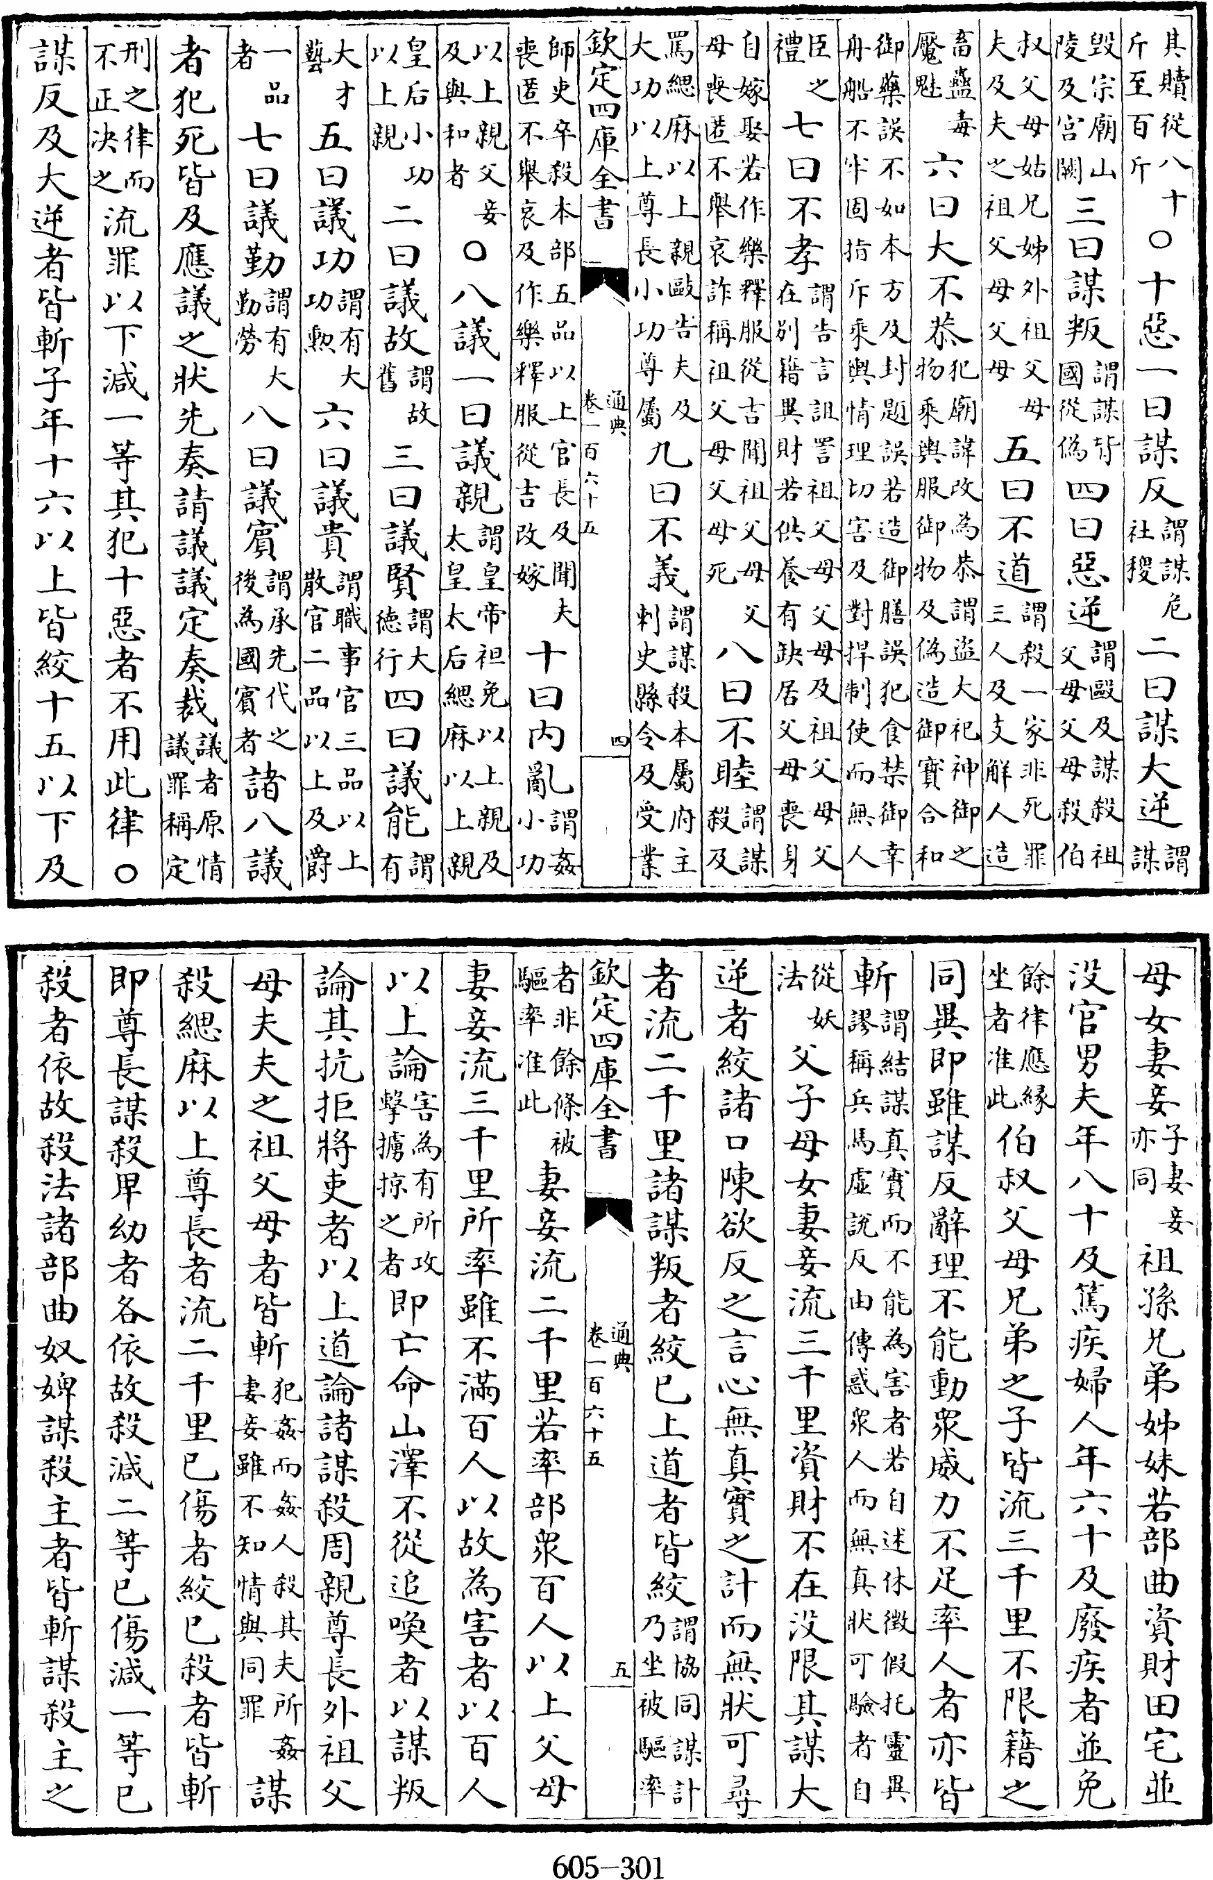 其贖從八十斤至百斤〇十惡一曰謀反謂謀危社稷二曰謀大逆謂謀
毀宗廟山陵及宮闕三曰謀叛謂謀背國從偽四曰惡逆謂毆及謀殺祖父母父母殺伯
叔父母姑兄姊外祖父母夫及夫之祖父母父母五曰不道謂殺一家非死罪三人及支解人造
畜蠱毒魘魅六曰大不恭犯廟諱改為恭謂盜大祀神御之物乘輿服御物及偽造御寶合和
御藥誤不如本方及封題誤若造御膳誤犯食禁御幸舟船不牢固指斥乘輿情理切害及對捍制使而無人
臣之禮七曰不孝謂告言詛詈祖父母父母及祖父母父在別籍異財若供養有缺居父母喪身
自嫁娶若作樂釋服從吉聞祖父母父母喪匿不舉哀詐稱祖父母父母死八曰不睦謂謀殺及
罵緦麻以上親毆告夫及大功以上尊長小功尊屬九曰不義謂謀殺本屬府主刺史縣令及受業
欽定四庫全書 通典卷一百六十五 四
師吏卒殺本部五品以上官長及聞夫喪匿不舉哀及作樂釋服從吉改嫁十曰內亂謂姦小功
以上親父妾及與和者〇八議一曰議親謂皇帝袒免以上親及太皇太后緦麻以上親
皇后小功以上親二曰議故謂故舊三曰議賢謂大德行四曰議能謂有
大才藝五曰議功謂有大功勲六曰議貴謂職事官三品以上散官二品以上及爵
一品者七曰議勤謂有大勤勞八曰議賓謂承先代之後為國賓者諸八議
者犯死皆及應議之狀先奏請議議定奏裁議者原情議罪稱定
刑之律而不正决之流罪以下減一等其犯十惡者不用此律〇
謀反及大逆者皆斬子年十六以上皆絞十五以下及
母女妻妾子妻妾亦同祖孫兄弟姊妹若部曲資財田宅並
没官男夫年八十及篤疾婦人年六十及廢疾者並免
餘律應緣坐者准此伯叔父母兄弟之子皆流三千里不限籍之
同異即雖謀反辭理不能動衆威力不足率人者亦皆
斬謂結謀真實而不能為害者若自述休徵假托靈異謬稱兵馬虛說反由傳惑衆人而無真狀可驗者自
從妖法父子母女妻妾流三千里資財不在没限其謀大
逆者絞諸口陳欲反之言心無真實之計而無狀可尋
者流二千里諸謀叛者絞已上道者皆絞謂協同謀計乃坐被驅率
欽定四庫全書 通典卷一百六十五 五
者非餘條被驅率准此妻妾流二千里若率部衆百人以上父母
妻妾流三千里所率雖不滿百人以故為害者以百人
以上論害為有所攻擊擄掠之者即亡命山澤不從追喚者以謀叛
論其抗拒將吏者以上道論諸謀殺周親尊長外祖父
母夫夫之祖父母者皆斬犯姦而姦人殺其夫所姦妻妾雖不知情與同罪謀
殺緦麻以上尊長者流二千里已傷者絞已殺者皆斬
即尊長謀殺卑幼者各依故殺減二等已傷減一等已
殺者依故殺法諸部曲奴婢謀殺主者皆斬謀殺主之
605-301